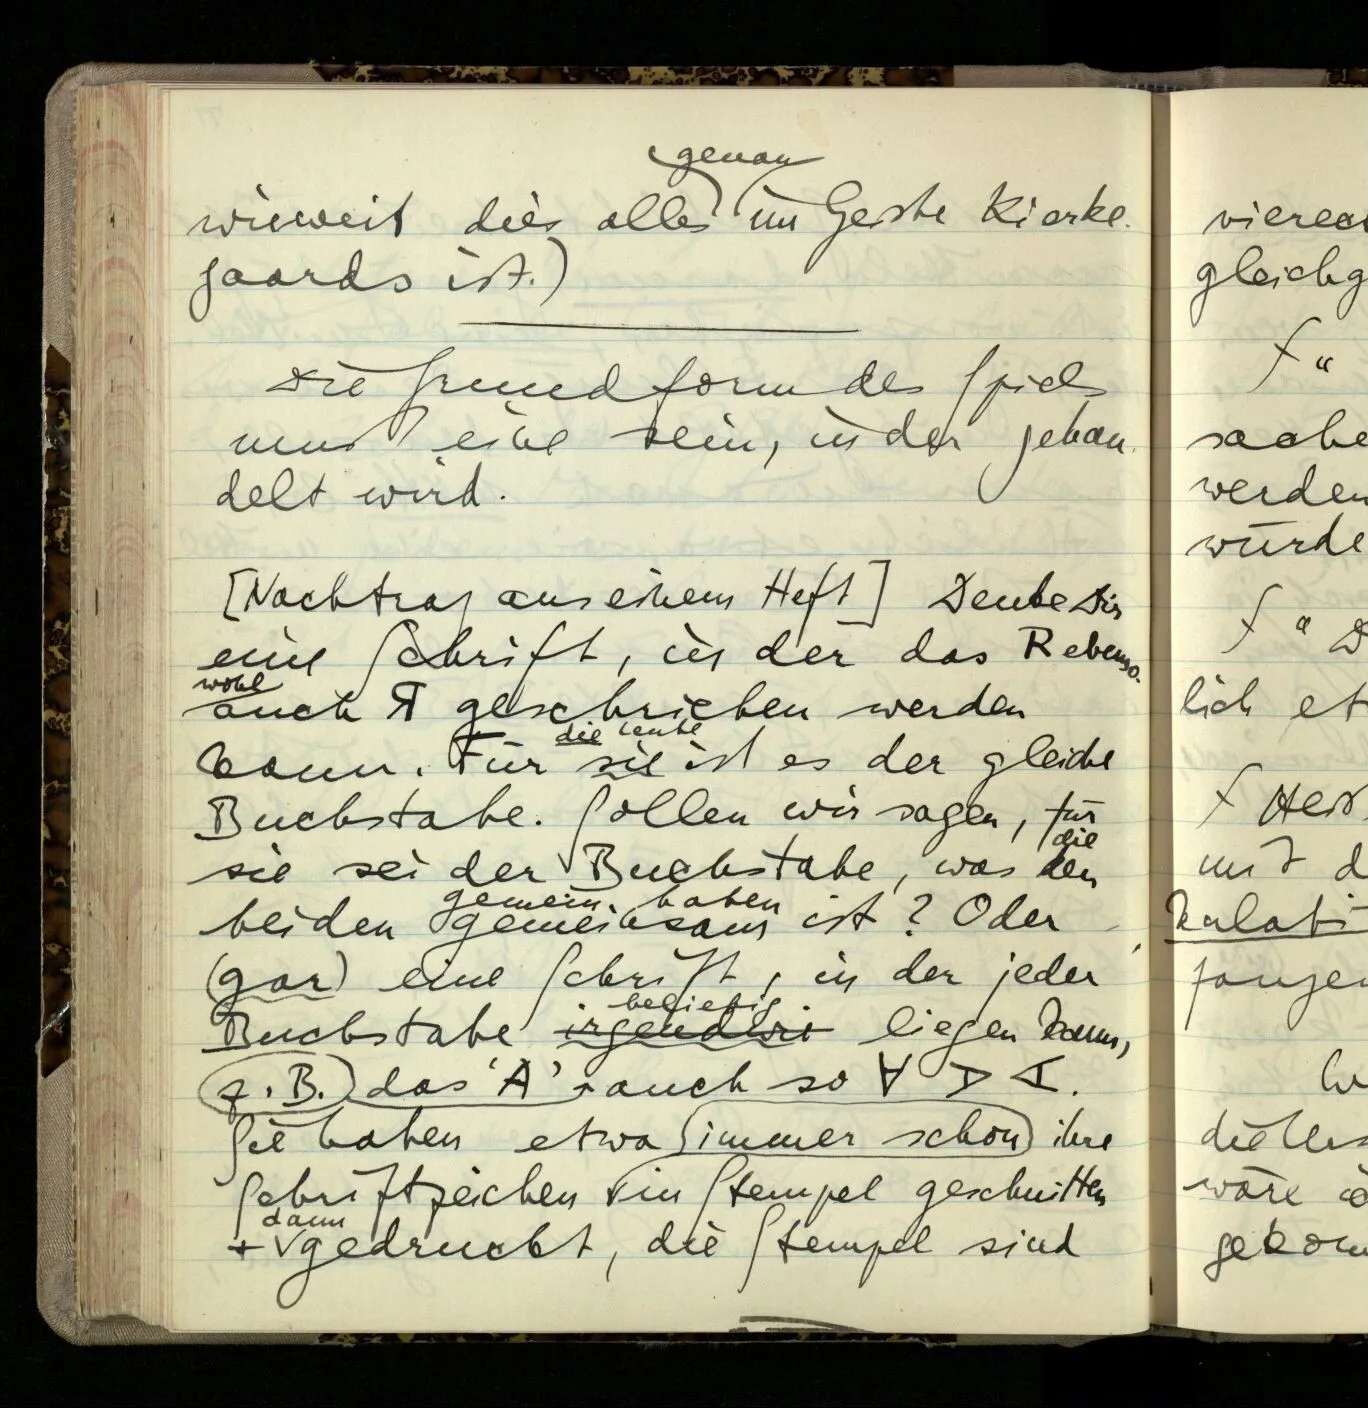 genau
wieweit dies alles im Geiste Kierke-
gaards ist.)
Die Grundform des Spiels
muß eine sein, in der gehan-
delt wird.
[Nachtrag aus einem Heft] Denke Dir
eine Schrift, in der das R ebenso-
wohl
auch Я geschrieben werden
die Leute
kann. Für sie ist es der gleiche
Buchstabe. Sollen wir sagen, für
die
sie sei der Buchstabe, was den
gemein haben
beiden gemeinsam ist? Oder
(gar) eine Schrift, in der jeder
beliebig
Buchstabe irgendwie liegen kann,
z.B. das 'A' auch so ∀ ᗒ ᗕ.
Sie haben etwa immer schon ihre
Schriftzeichen in Stempel geschnitten
dann
+ gedruckt, die Stempel sind
gleichg
f "
sache
werden
würde
f "D
lich et
f
mit d
die
wäre